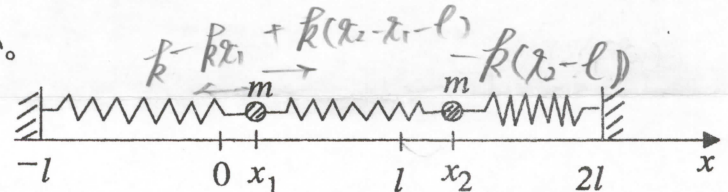 。
k -kx₁ + k(x₂-x₁-l)
-k(x₂-l)
m m
-l 0 x₁ l x₂ 2l x